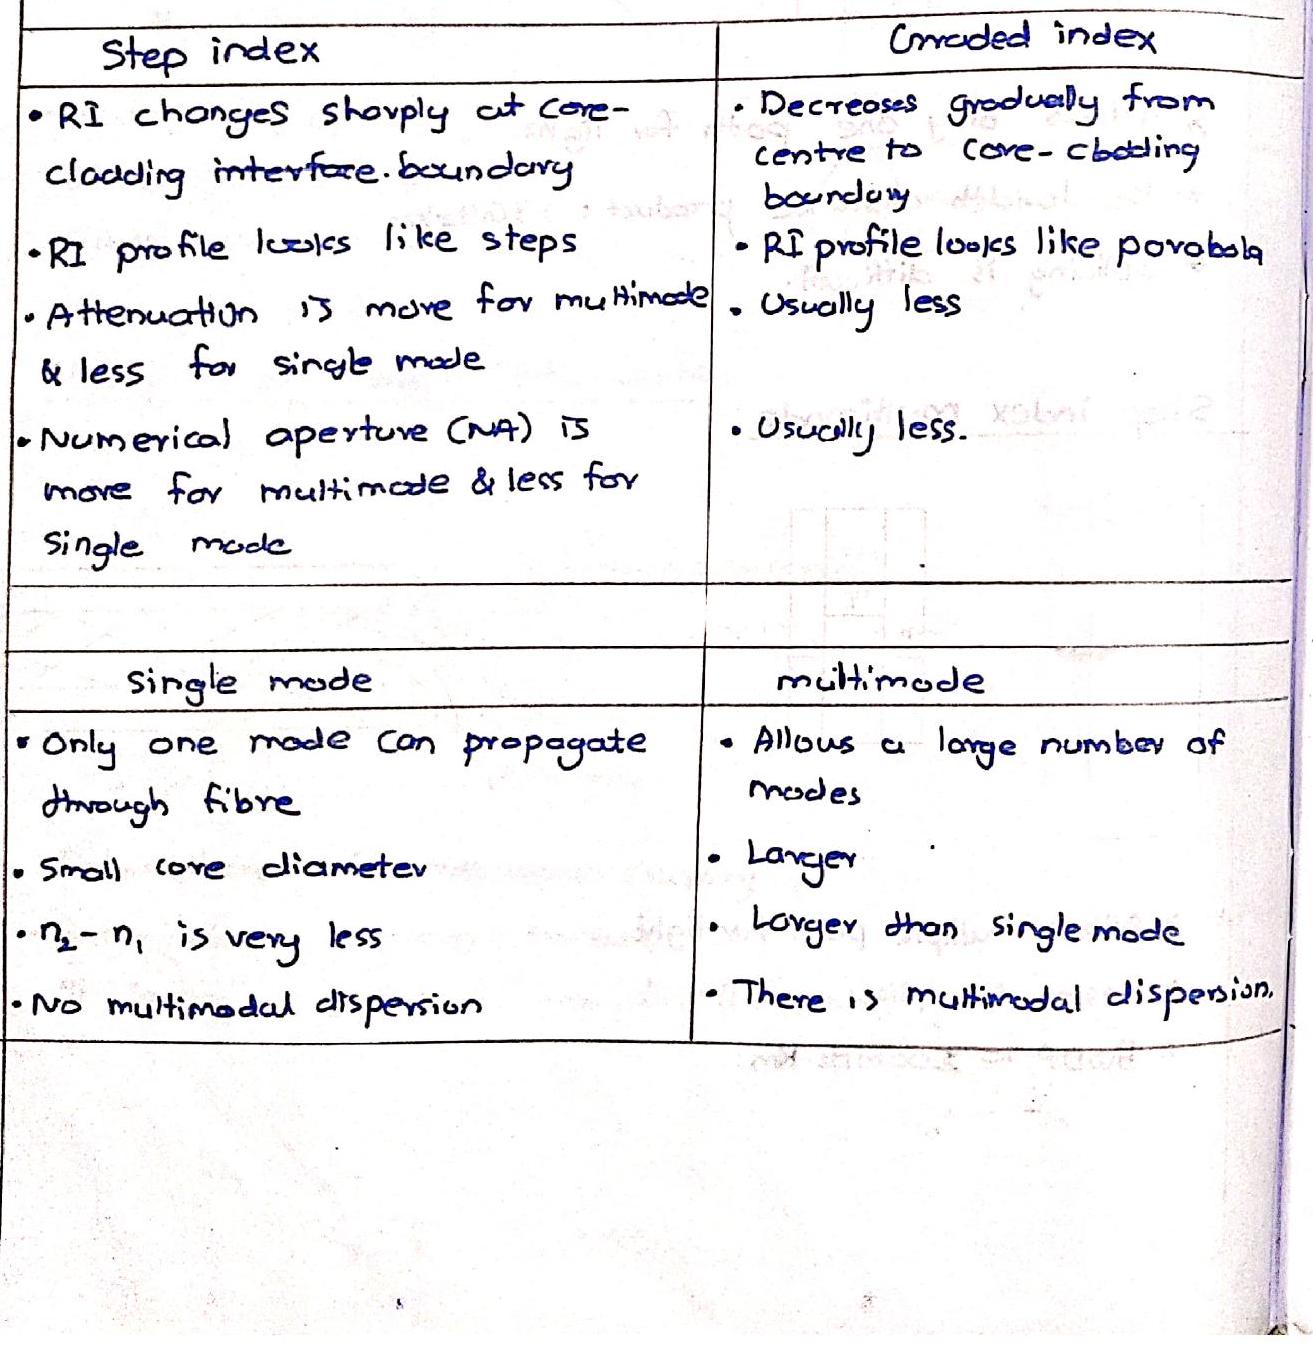 Step index
Graded index
• RI changes sharply at core-
cladding interface. boundary
• Decreases gradually from
centre to core-cladding
boundary
• RI profile looks like steps
• RI profile looks like parabola
• Attenuation is more for multimode
& less for single mode
• Usually less
• Numerical aperture (NA) is
more for multimode & less for
single mode
• Usually less.
Single mode
multimode
• Only one mode can propagate
through fibre
• Allows a large number of
modes
• Small core diameter
• Larger
• n₂ - n₁ is very less
• Larger than single mode
• No multimodal dispersion
• There is multimodal dispersion.